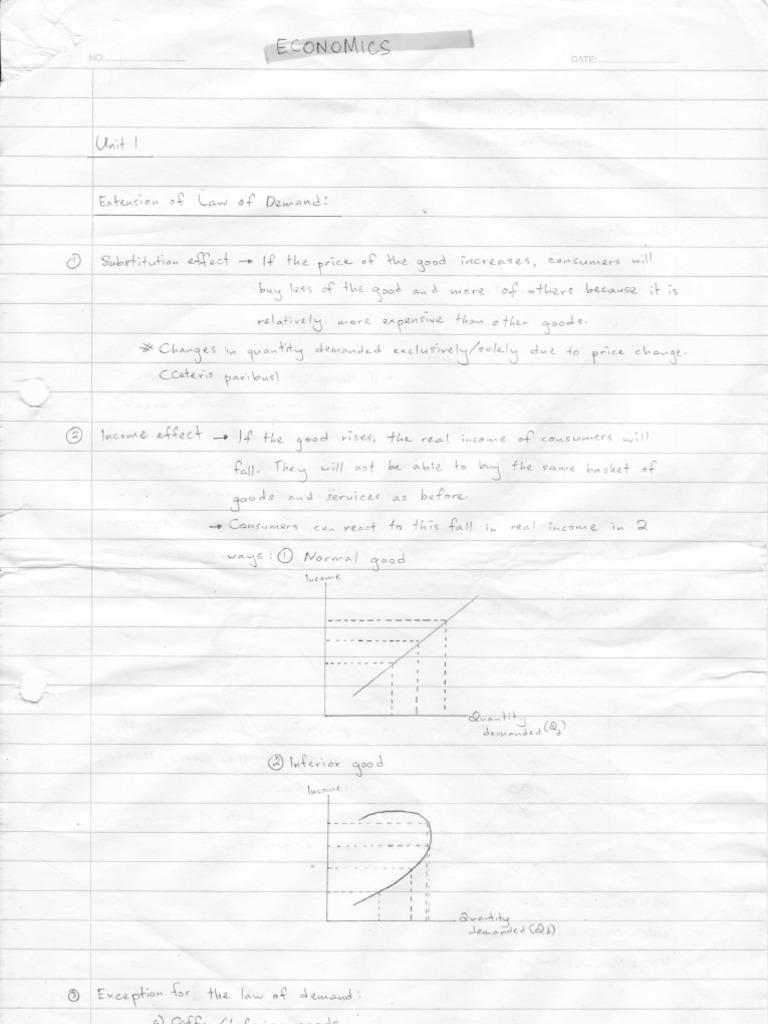 ECONOMICS
NO:
DATE:
Unit 1
Extension of Law of Demand:
① Substitution effect → If the price of the good increases, consumers will
buy less of the good and more of others because it is
relatively more expensive than other goods.
* Changes in quantity demanded exclusively/solely due to price change.
(Ceteris paribus)
② Income effect → If the good rises, the real income of consumers will
fall. They will not be able to buy the same basket of
goods and services as before
→ Consumers can react to this fall in real income in 2
ways: ① Normal good
Income
Quantity
demanded (Qd)
② Inferior good
Income
Quantity
demanded (Qd)
③ Exception for the law of demand:
a) Giffen/Inferior goods